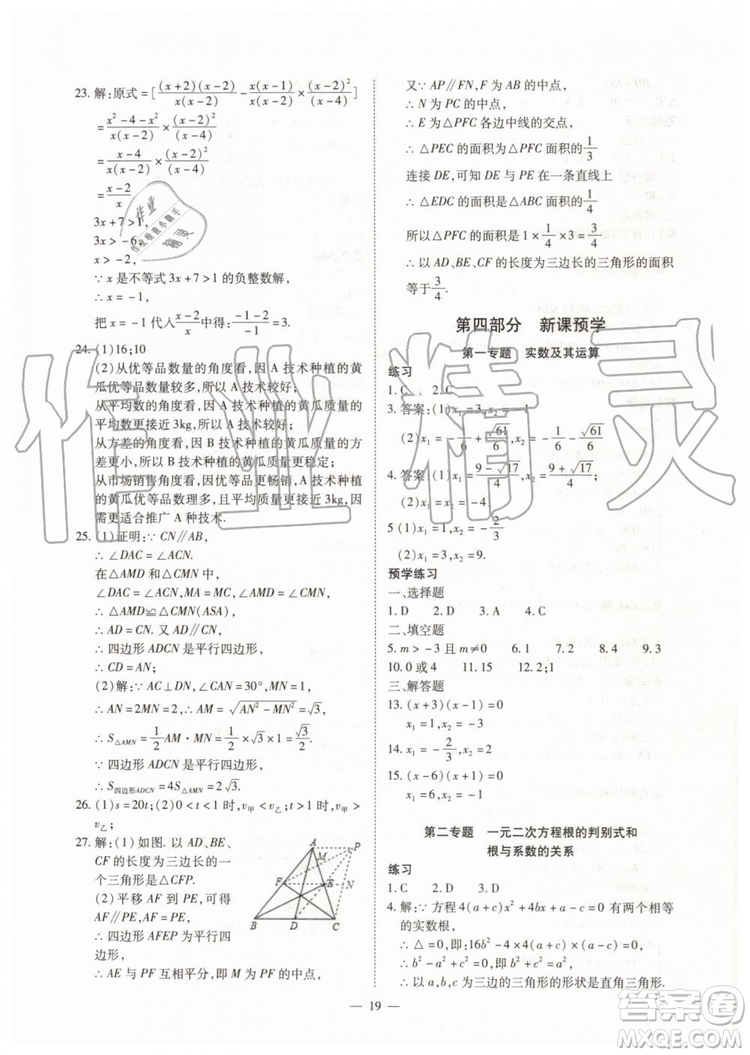 23. 解:原式=[(x+2)(x-2)/x(x-2) - x(x-1)/x(x-2) × (x-2)²/(x-4)]
= (x²-4-x²+x)/x(x-2) × (x-2)²/(x-4)
= (x-4)/x(x-2) × (x-2)²/(x-4)
= (x-2)/x
3x+7>1,
3x>-6,
x>-2,
∵ x 是不等式 3x+7>1 的负整数解,
∴ x=-1,
把 x=-1 代入 (x-2)/x 中,得:(-1-2)/-1=3.
24. (1)16;10
(2)从优等品数量的角度看,因 A 技术种植的黄
瓜优等品数量较多,所以 A 技术较好;
从平均数的角度看,因 A 技术种植的黄瓜质量的
平均数更接近 3kg,所以 A 技术较好;
从方差的角度看,因 B 技术种植的黄瓜质量的方
差更小,所以 B 技术种植的黄瓜质量更稳定;
从市场销售角度看,因优等品更畅销,A 技术种植
的黄瓜优等品数理多,且平均质量更接近 3kg,因
而需更适合推广 A 种技术.
25. (1)证明:∵ CN∥AB,
∴ ∠DAC=∠ACN.
在△AMD 和△CMN 中,
∠DAC=∠ACN,MA=MC,∠AMD=∠CMN,
∴ △AMD≌△CMN(ASA),
∴ AD=CN,
∴ 四边形 ADCN 是平行四边形,
∴ CD=AN;
(2)解:∵ AC⊥DN,∠CAN=30°,MN=1,
∴ AN=2MN=2,∴ AM=√(AN²-MN²)=√3,
∴ S△AMN=1/2 AM·MN=1/2×√3×1=√3/2.
∵ 四边形 ADCN 是平行四边形,
∴ S四边形ADCN=4S△AMN=2√3.
26. (1)s=20t;(2)0<t<1 时,v甲<v乙;t>1 时,v甲>
v乙
27. 解:(1)如图. 以 AD、BE、
CF 的长度为三边长的一
个三角形是△CFP.
(2)平移 AF 到 PE,可得
AF∥PE,AF=PE,
∴ 四边形 AFEP 为平行四边形,
∴ AE 与 PF 互相平分,即 M 为 PF 的中点,
A
P
M
F
E
N
B
D
C
又∵ AP∥FN,F 为 AB 的中点,
∴ N 为 PC 的中点,
∴ E 为△PFC 各边中线的交点,
∴ △PEC 的面积为△PFC 面积的 1/3
连接 DE,可知 DE 与 PE 在一条直线上
∴ △EDC 的面积是△ABC 面积的 1/4
所以△PFC 的面积是 1×1/4×3=3/4
∴ 以 AD、BE、CF 的长度为三边长的三角形的面积
等于 3/4.
第四部分 新课预学
第一专题 实数及其运算
练习
1. C 2. C
3. 答案:(1)x₁=3,x₂=-1
(2)x₁=-1/2+√61/6,x₂=-1/2-√61/6
4. 答案:(1)x₁=(9-√17)/4,x₂=(9+√17)/4
(2)x₁=x₂=
5 (1)x₁=4,x₂=-3
(2)x₁=3,x₂=9.
预学练习
一、选择题
1. D 2. D 3. A 4. C
二、填空题
5. m>-3 且 m≠0 6. 1 7. 5 8. 4 9. 3
10. 0 或 4 11. 15 12. 2;1
三、解答题
13. (x+3)(x-1)=0
x₁=1,x₂=-3
14. x₁=-2/3,x₂=4
15. (x-6)(x+1)=0
x₁=6,x₂=-1
第二专题 一元二次方程根的判别式和
根与系数的关系
练习
1. C 2. D 3. D
4. 解:∵ 方程 4(a+c)x²+4bx+a-c=0 有两个相等
的实数根,
∴ △=0,即:16b²-4×4(a+c)(a-c)=0,
∴ b²-a²+c²=0,即:b²+c²=a²,
∴ 以 a,b,c 为三边的三角形的形状是直角三角形.
— 19 —
作业精灵
答案圈
MXQE.COM